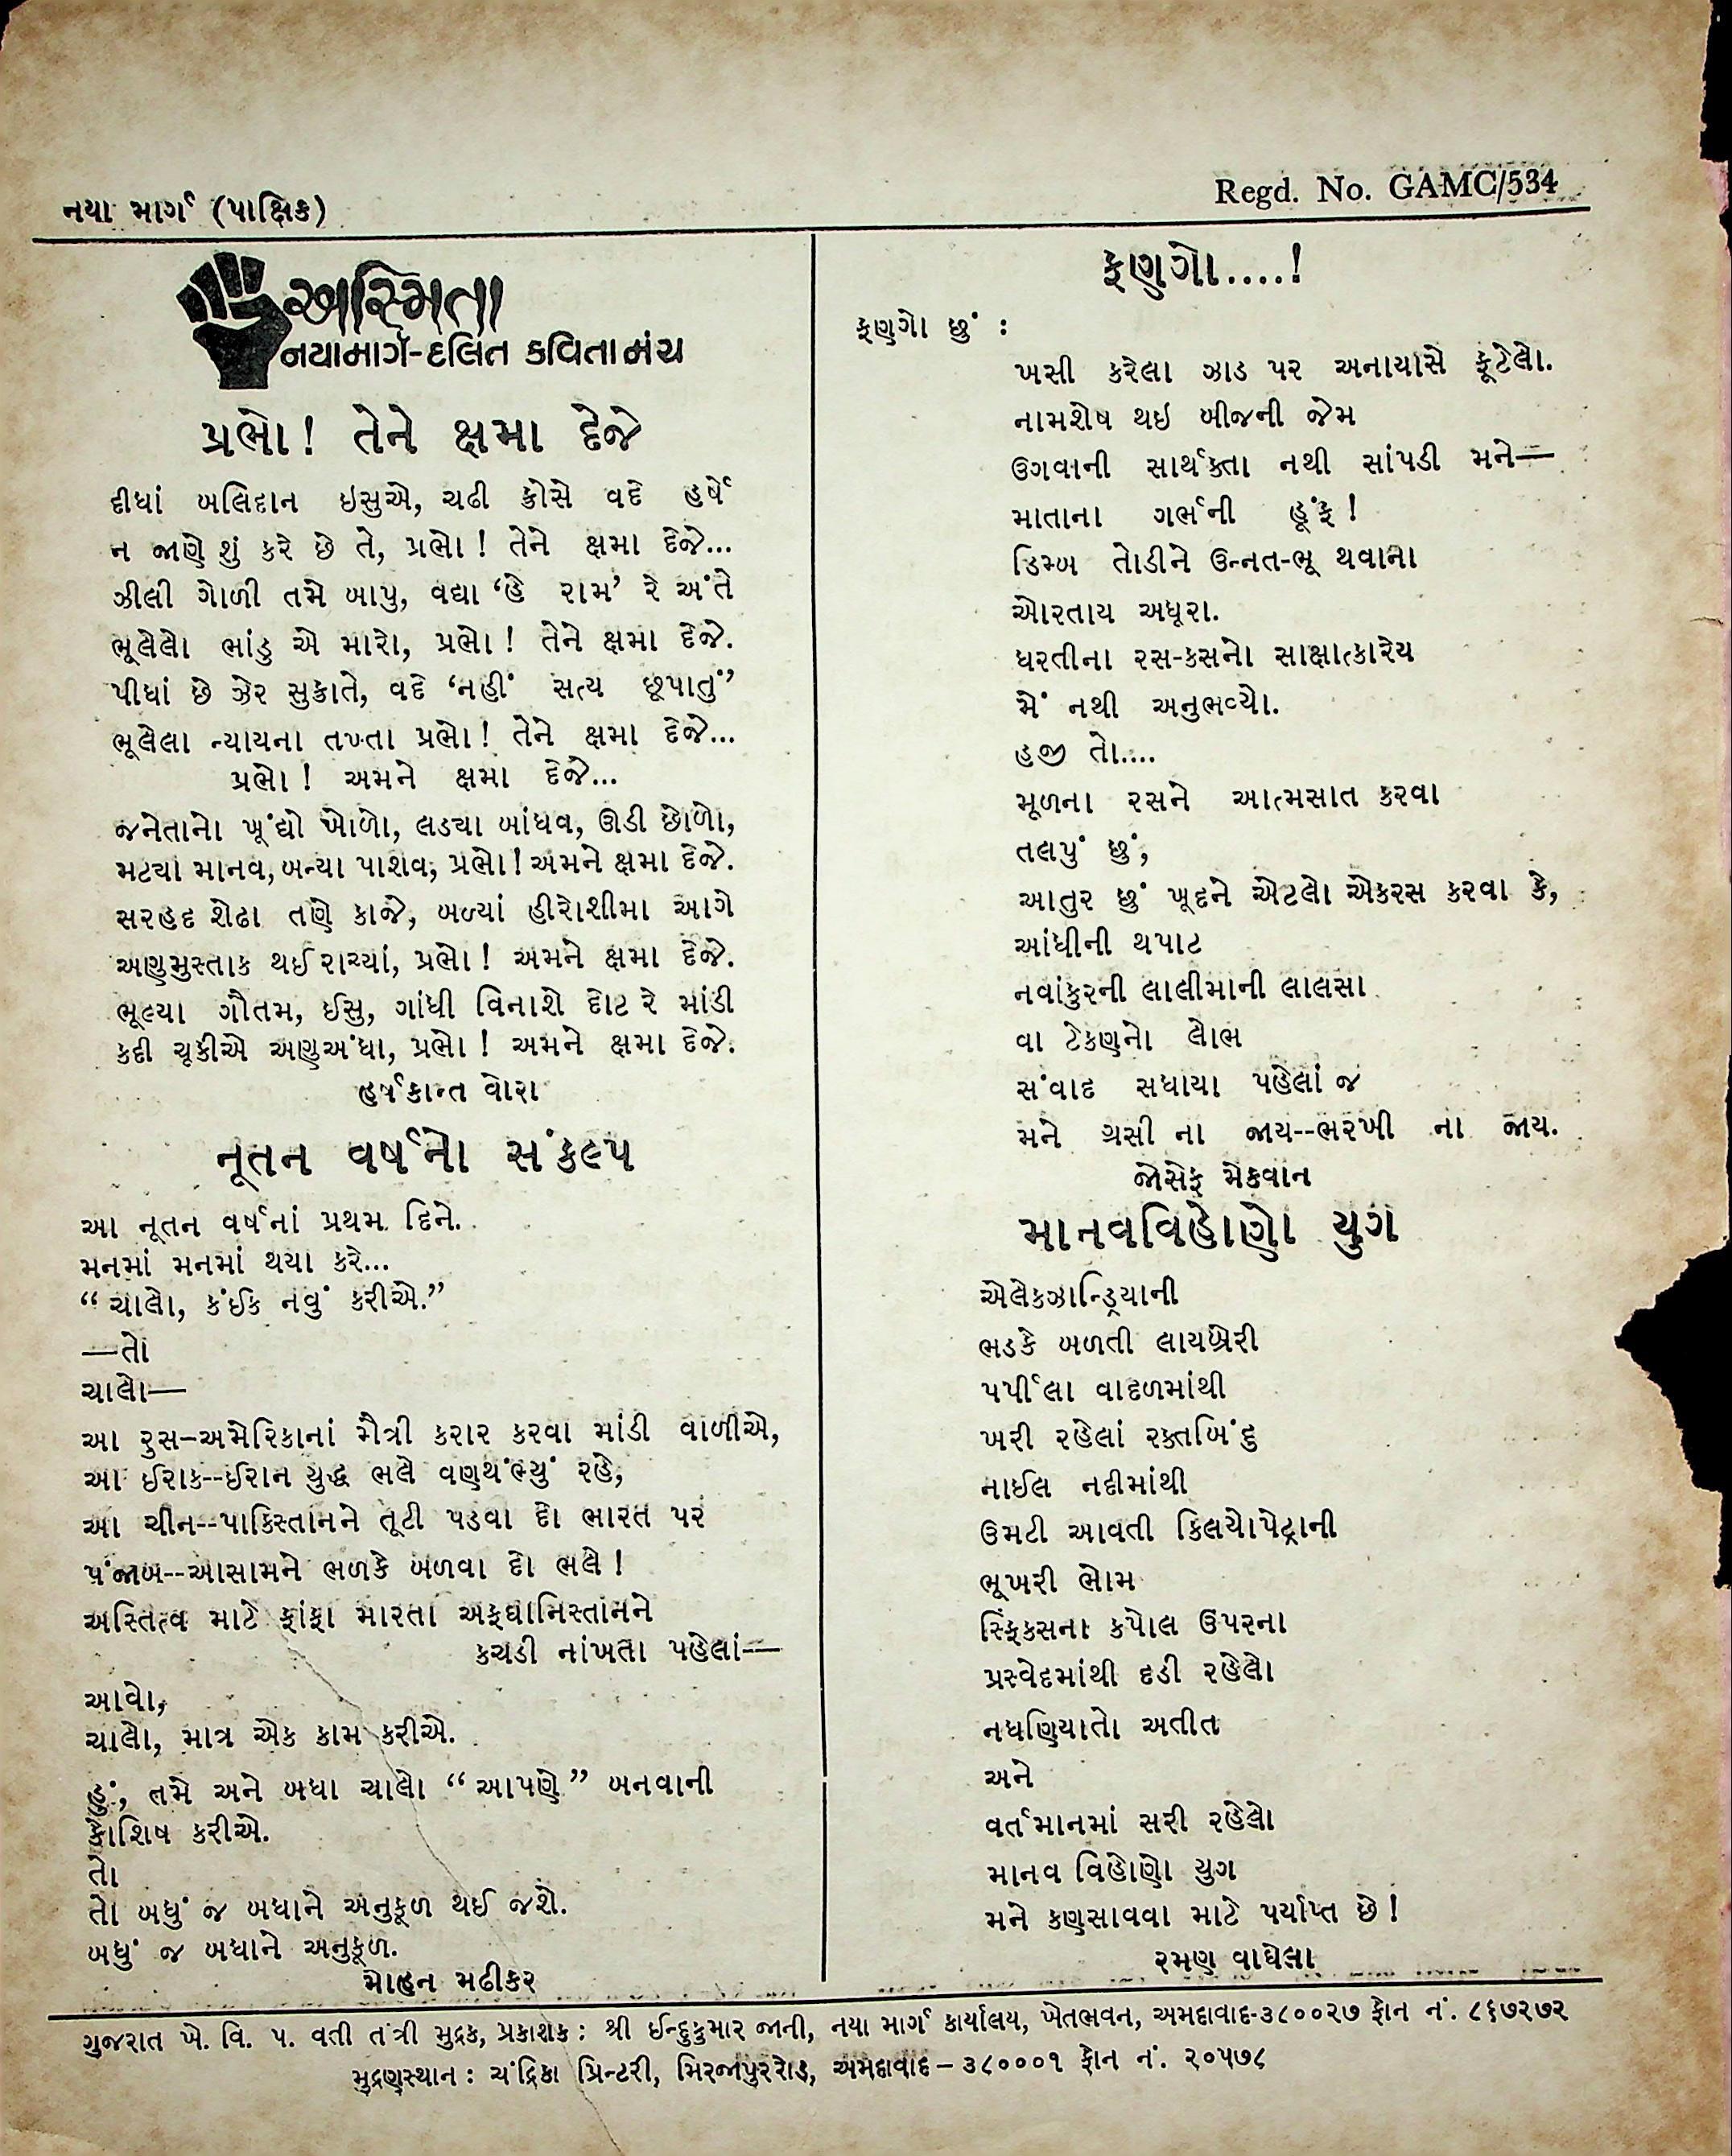 નયા માર્ગ (પાક્ષિક)
Regd. No. GAMC/534
અસ્મિતા
નયામાર્ગ-દલિત કવિતા મંચ
પ્રભો! તેને ક્ષમા દેજે
દીધાં બલિદાન ઇસુએ, ચઢી ક્રોસે વદે હર્ષે
ન જાણે શું કરે છે તે, પ્રભો! તેને ક્ષમા દેજે...
ઝીલી ગોળી તમે બાપુ, વદ્યા ‘હે રામ’ રે અંતે
ભૂલેલો ભાંડુ એ મારો, પ્રભો! તેને ક્ષમા દેજે.
પીધાં છે ઝેર સુક્રાતે, વદે ‘નહીં સત્ય છૂપાતું’
ભૂલેલા ન્યાયના તખ્તા પ્રભો! તેને ક્ષમા દેજે...
પ્રભો! અમને ક્ષમા દેજે...
જનેતાનો ખૂંદ્યો ખોળો, લડ્યા બાંધવ, ઊડી છોળો,
મટ્યા માનવ, બન્યા પાશવ, પ્રભો! અમને ક્ષમા દેજે.
સરહદ શેઢા તણે કાજે, બળ્યાં હીરોશીમા આગે
અણુમુસ્તાક થઈ રાચ્યાં, પ્રભો! અમને ક્ષમા દેજે.
ભૂલ્યા ગૌતમ, ઈસુ, ગાંધી વિનાશે દોટ રે માંડી
કદી ચૂકીએ અણુઅંધા, પ્રભો! અમને ક્ષમા દેજે.
હર્ષકાન્ત વોરા
નૂતન વર્ષનો સંકલ્પ
આ નૂતન વર્ષનાં પ્રથમ દિને.
મનમાં મનમાં થયા કરે...
“ચાલો, કંઈક નવું કરીએ.”
—તો
ચાલો—
આ રુસ-અમેરિકાનાં મૈત્રી કરાર કરવા માંડી વાળીએ,
આ ઈરાક--ઈરાન યુદ્ધ ભલે વણથંભ્યું રહે,
આ ચીન--પાકિસ્તાનને તૂટી પડવા દો ભારત પર
પંજાબ--આસામને ભળકે બળવા દો ભલે!
અસ્તિત્વ માટે ફાંફા મારતા અફઘાનિસ્તાનને
કચડી નાંખતા પહેલાં—
આવો,
ચાલો, માત્ર એક કામ કરીએ.
હું, તમે અને બધા ચાલો “આપણે” બનવાની
કોશિષ કરીએ.
તો
તો બધું જ બધાને અનુકૂળ થઈ જશે.
બધું જ બધાને અનુકૂળ.
મોહન મઢીકર
ફણગો....!
ફણગો છું :
ખસી કરેલા ઝાડ પર અનાયાસે ફૂટેલો.
નામશેષ થઇ બીજની જેમ
ઉગવાની સાર્થક્તા નથી સાંપડી મને—
માતાના ગર્ભની હૂંફ!
ડિમ્બ તોડીને ઉન્નત-ભૂ થવાના
ઓરતાય અધૂરા.
ધરતીના રસ-કસનો સાક્ષાત્કારેય
મેં નથી અનુભવ્યો.
હજી તો....
મૂળના રસને આત્મસાત કરવા
તલપું છું,
આતુર છું ખૂદને એટલો એકરસ કરવા કે,
આંધીની થપાટ
નવાંકુરની લાલીમાની લાલસા
વા ટેકણનો લોભ
સંવાદ સધાયા પહેલાં જ
મને ગ્રસી ના જાય--ભરખી ના જાય.
જોસેફ મેકવાન
માનવવિહોણો યુગ
એલેકઝાન્ડ્રિયાની
ભડકે બળતી લાયબ્રેરી
પર્પીલા વાદળમાંથી
ખરી રહેલાં રક્તબિંદુ
નાઈલ નદીમાંથી
ઉમટી આવતી કિલયોપેટ્રાની
ભૂખરી ભોમ
સ્ફિંક્સના કપોલ ઉપરના
પ્રસ્વેદમાંથી દડી રહેલો
નધણિયાતો અતીત
અને
વર્તમાનમાં સરી રહેલો
માનવ વિહોણો યુગ
મને કણસાવવા માટે પર્યાપ્ત છે!
રમણ વાઘેલા
ગુજરાત ખે. વિ. પ. વતી તંત્રી મુદ્રક, પ્રકાશક : શ્રી ઈન્દુકુમાર જાની, નયા માર્ગ કાર્યાલય, ખેતભવન, અમદાવાદ-૩૮૦૦૨૭ ફોન નં. ૮૬૭૨૭૨
મુદ્રણસ્થાન : ચંદ્રિકા પ્રિન્ટરી, મિરજાપુરરોડ, અમદાવાદ – ૩૮૦૦૦૧ ફોન નં. ૨૦૫૭૮